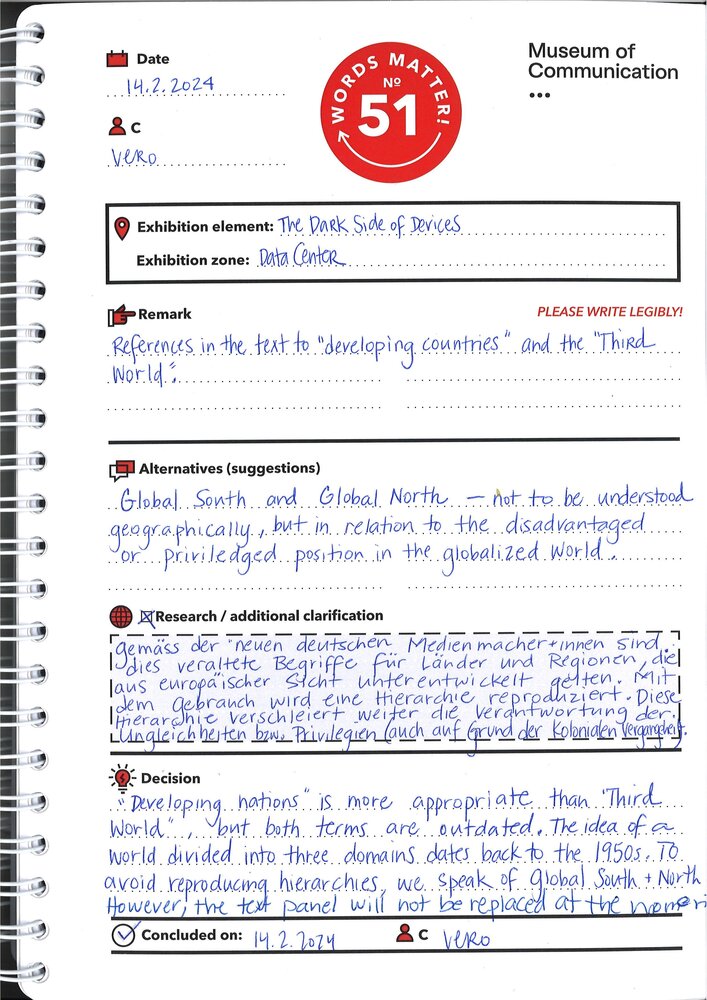 Date
14.2.2024
C
Vero
WORDS MATTER!
Nº
51
Museum of
Communication
Exhibition element: The Dark Side of Devices
Exhibition zone: Data Center
Remark
PLEASE WRITE LEGIBLY!
References in the text to "developing countries" and the "Third
World".
Alternatives (suggestions)
Global South and Global North – not to be understood
geographically, but in relation to the disadvantaged
or priviledged position in the globalized world.
Research / additional clarification
gemäss der "neuen deutschen Medienmacher*innen sind
dies veraltete Begriffe für Länder und Regionen, die
aus europäischer Sicht unterentwickelt gelten. Mit
dem Gebrauch wird eine Hierarchie reproduziert. Diese
Hierarchie verschleiert weiter die Verantwortung der
Ungleichheiten bzw. Privilegien (auch auf Grund der Kolonialen Vergangheit).
Decision
"Developing nations" is more appropriate than "Third
World", but both terms are outdated. The idea of a
world divided into three domains dates back to the 1950s. To
avoid reproducing hierarchies, we speak of Global South + North
However, the text panel will not be replaced at the
Concluded on: 14.2.2024
C Vero